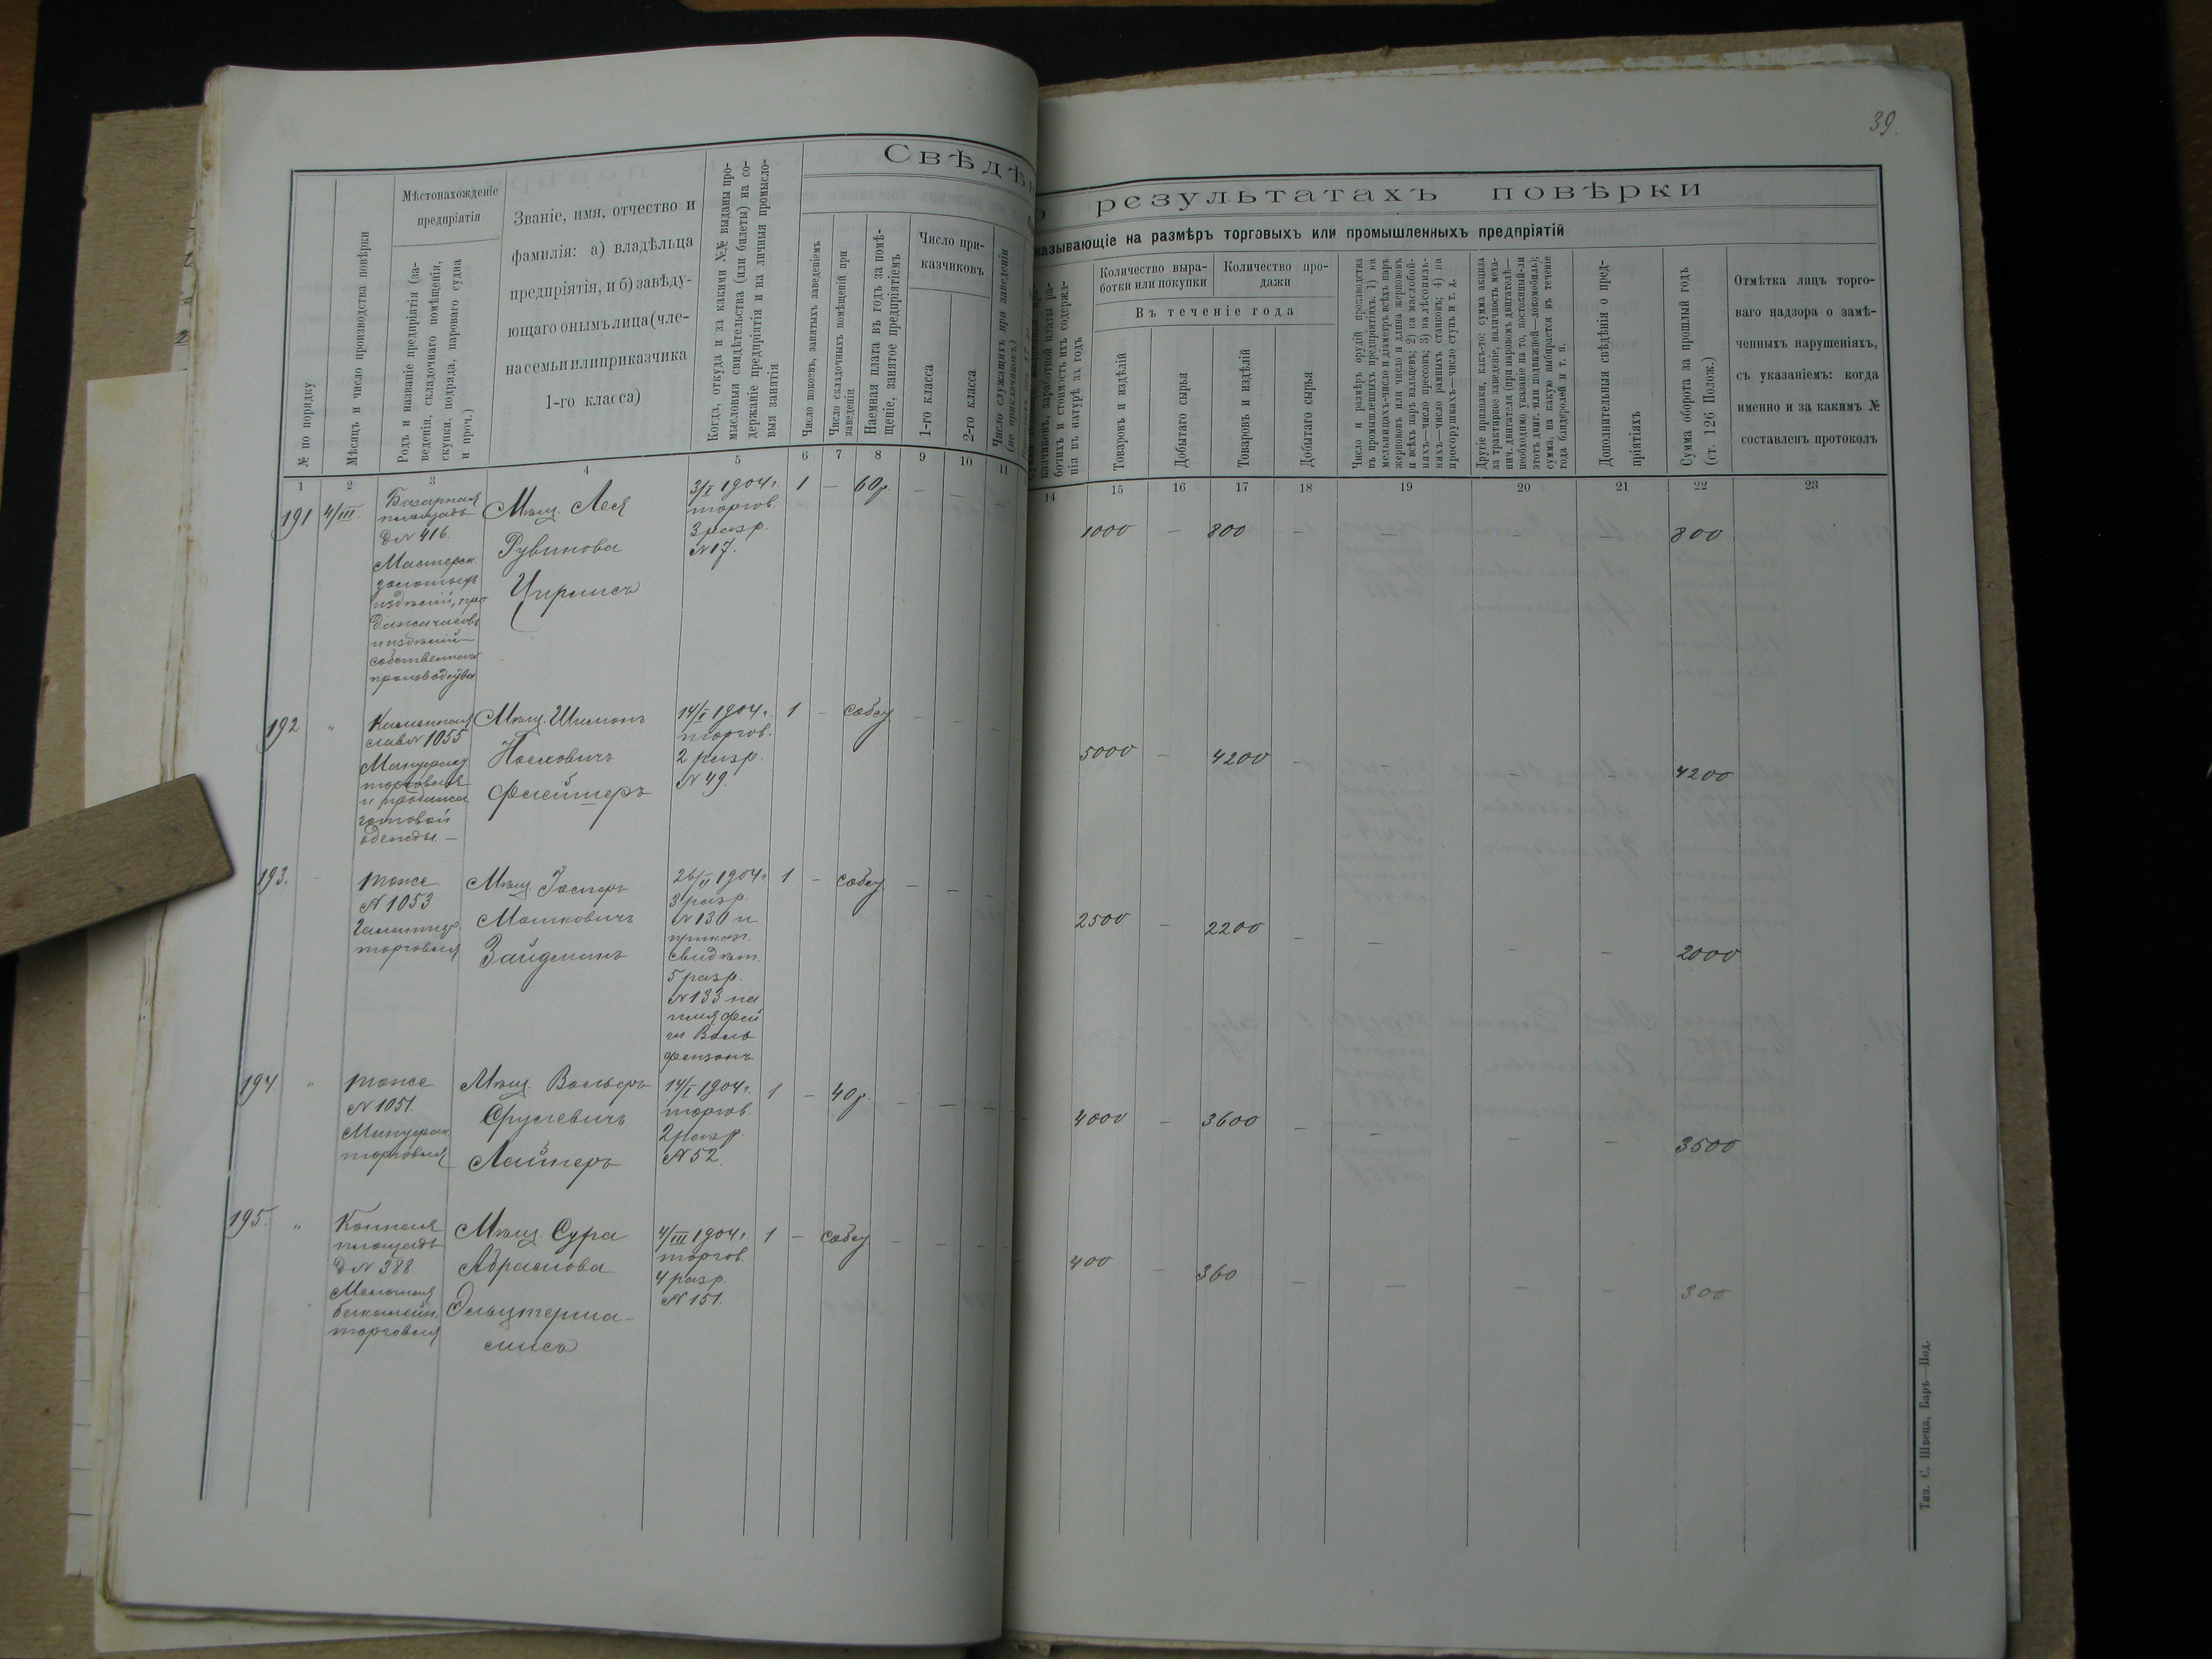 39.
Свѣдѣн
о результатахъ повѣрки
казывающіе на размѣръ торговыхъ или промышленныхъ предпріятій
№ по порядку
Мѣсяцъ и число производства повѣрки
Мѣстонахожденіе
предпріятія
Родъ и названіе предпріятія (за-
веденія, складочнаго помѣщенія,
скупки, подряда, парового судна
и проч.)
Званіе, имя, отчество и
фамилія: а) владѣльца
предпріятія, и б) завѣду-
ющаго онымъ лица (чле-
на семьи или приказчика
1-го класса)
Когда, откуда и за какими №№ выданы про-
мысловыя свидѣтельства (или билеты) на со-
держаніе предпріятія и на личныя промысло-
выя занятія
Число покоевъ, занятыхъ заведеніемъ
Число складочныхъ помѣщеній при
заведеніи
Наемная плата въ годъ за помѣ-
щеніе, занятое предпріятіемъ
Число при-
казчиковъ
1-го класса
2-го класса
Число служащихъ при заведеніи
(не приказчиковъ)
казчиковъ, заработной платы ра-
бочихъ и стоимость ихъ содержа-
нія въ натурѣ за годъ
Количество выра-
ботки или покупки
Количество про-
дажи
Въ теченіе года
Товаровъ и издѣлій
Добытаго сырья
Товаровъ и издѣлій
Добытаго сырья
Число и размѣръ орудій производства
въ промышленныхъ предпріятіяхъ: 1) на
мельницахъ-число и діаметръ всѣхъ паръ
жернововъ или число и длина жернововъ
и всѣхъ паръ вальцевъ; 2) на маслобой-
няхъ—число прессовъ; 3) на лѣсопиль-
няхъ—число рамныхъ станковъ; 4) на
просорушкахъ—число ступъ и т. д.
Другіе признаки, какъ-то: сумма акциза
за трактирное заведеніе, наличность меха-
нич. двигателя (при паровомъ двигателѣ—
необходимо указаніе на то, постоянный-ли
этотъ двиг. или подвижной—локомобиль);
сумма, на какую выбирается въ теченіе
года бандеролей и т. п.
Дополнительныя свѣдѣнія о пред-
пріятіяхъ
Сумма оборота за прошлый годъ
(ст. 126 Полож.)
Отмѣтка лицъ торго-
ваго надзора о замѣ-
ченныхъ нарушеніяхъ,
съ указаніемъ: когда
именно и за какимъ №
составленъ протоколъ
1 2 3 4 5 6 7 8 9 10 11
14 15 16 17 18 19 20 21 22 23
191 4/III.
Базарная
площадь
д № 416.
Мастерск.
золотыхъ
издѣлій, про
дажа часовъ
и издѣлій
собственнаго
производства
Мѣщ. Лея
Рувинова
Циприсъ
3/I 1904 г.
торгов.
3 разр.
№ 17.
1 — 60 р. — — —
1000 — 800 — — — — 800
192 "
Каменная
лавка № 1055
Мануфакт
торговля
и продажа
готовой
одежды. —
Мѣщ. Шимонъ
Іосковичъ
Флейшеръ
14/I 1904 г.
торгов.
2 разр.
№ 49.
1 — собст — — —
5000 — 4200 — — — — 4200
193. -
тоже
№ 1053
Галантер.
торговля
Мѣщ. Іосифъ
Мошковичъ
Зайдманъ
26/II 1904 г.
3 разр.
№ 130 и
приказ.
свидѣт.
5 разр.
№ 133 на
имя Фей
ги Воль
фензонъ
1 — собст — — —
2500 — 2200 — — — — 2000
194 "
тоже
№ 1051.
Мануфак.
торговля
Мѣщ. Вольфъ
Срулевичъ
Лайнеръ
14/I 1904 г.
торгов.
2 разр.
№ 52.
1 — 40 р. — — —
4000 — 3600 — — — — 3500
195. "
Конная
площадь
д № 388
Мелочная
бакалейн.
торговля
Мѣщ. Сура
Абрамова
4/III 1904 г.
торгов.
4 разр.
№ 151.
1 — собст — — —
400 — 360 — — — — 300
Тип. С. Швеца, Баръ—Под.